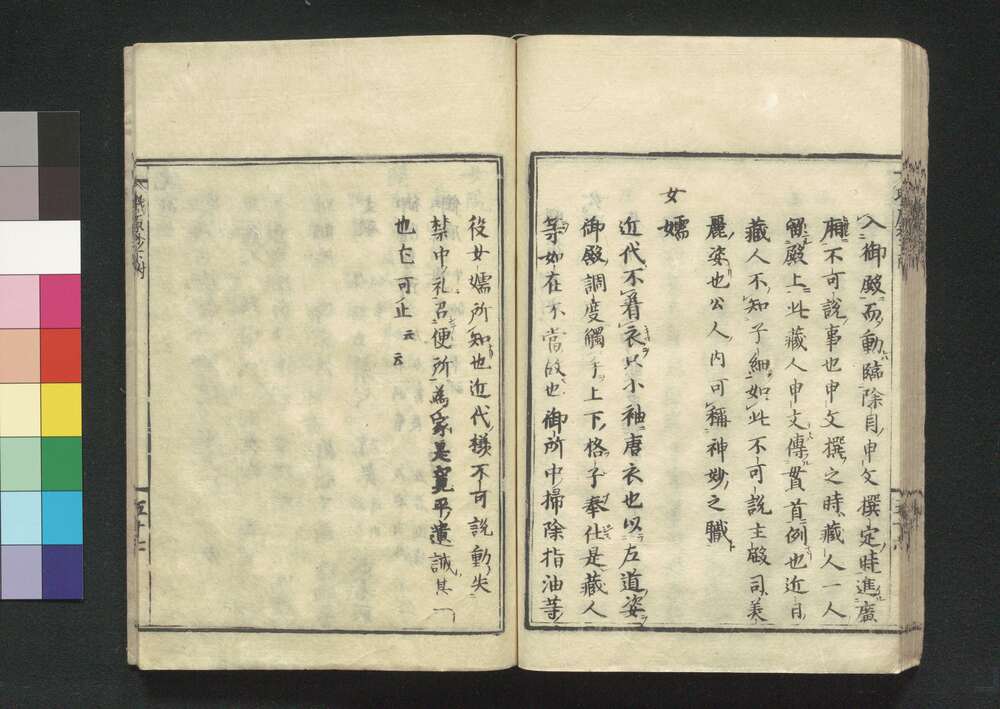 入御殿而動臨除目申文撰定時進廣
廂不可説事也申文撰之時藏人一人
留殿上此藏人申文傳貫首例也近日
藏人不知子細如此不可説主殿司美
麗姿也公人内可稱神妙之職
女嬬
近代不着衣只小袖唐衣也以左道姿
御殿調度觸手上下格子奉仕是藏人
等如在不當故也御所中掃除指油等
役女嬬所知也近代樣不可説動失
禁中礼召便所爲家是寛平遺誡其一
也七可止云云
五十七